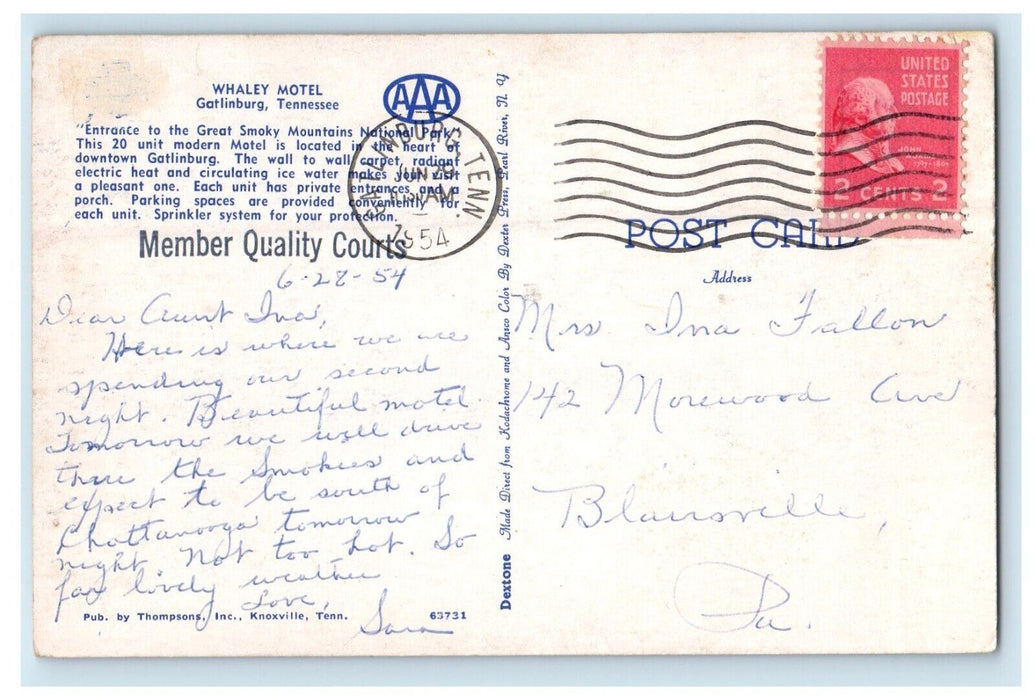 WHALEY MOTEL
Gatlinburg, Tennessee
AAA
"Entrance to the Great Smoky Mountains National Park"
This 20 unit modern Motel is located in the heart of
downtown Gatlinburg. The wall to wall carpet, radiant
electric heat and circulating ice water makes your visit
a pleasant one. Each unit has private entrances and a
porch. Parking spaces are provided conveniently for
each unit. Sprinkler system for your protection.
Member Quality Courts
6-28-54
Dear Aunt Ina,
Here is where we are
spending our second
night. Beautiful motel.
Tomorrow we will drive
thru the Smokies and
expect to be south of
Chattanooga tomorrow
night. Not too hot. So
far lovely weather
Love,
Sara
Pub. by Thompsons, Inc., Knoxville, Tenn.
63731
GATLINBURG, TENN.
JUN 29
AM
1954
Dextone Made Direct from Kodachrome and Ansco Color By Dexter Press, Pearl River, N. Y
UNITED
STATES
POSTAGE
JOHN
ADAMS
2 CENTS 2
POST CARD
Address
Mrs Ina Fallon
142 Morewood Ave
Blairsville,
Pa.